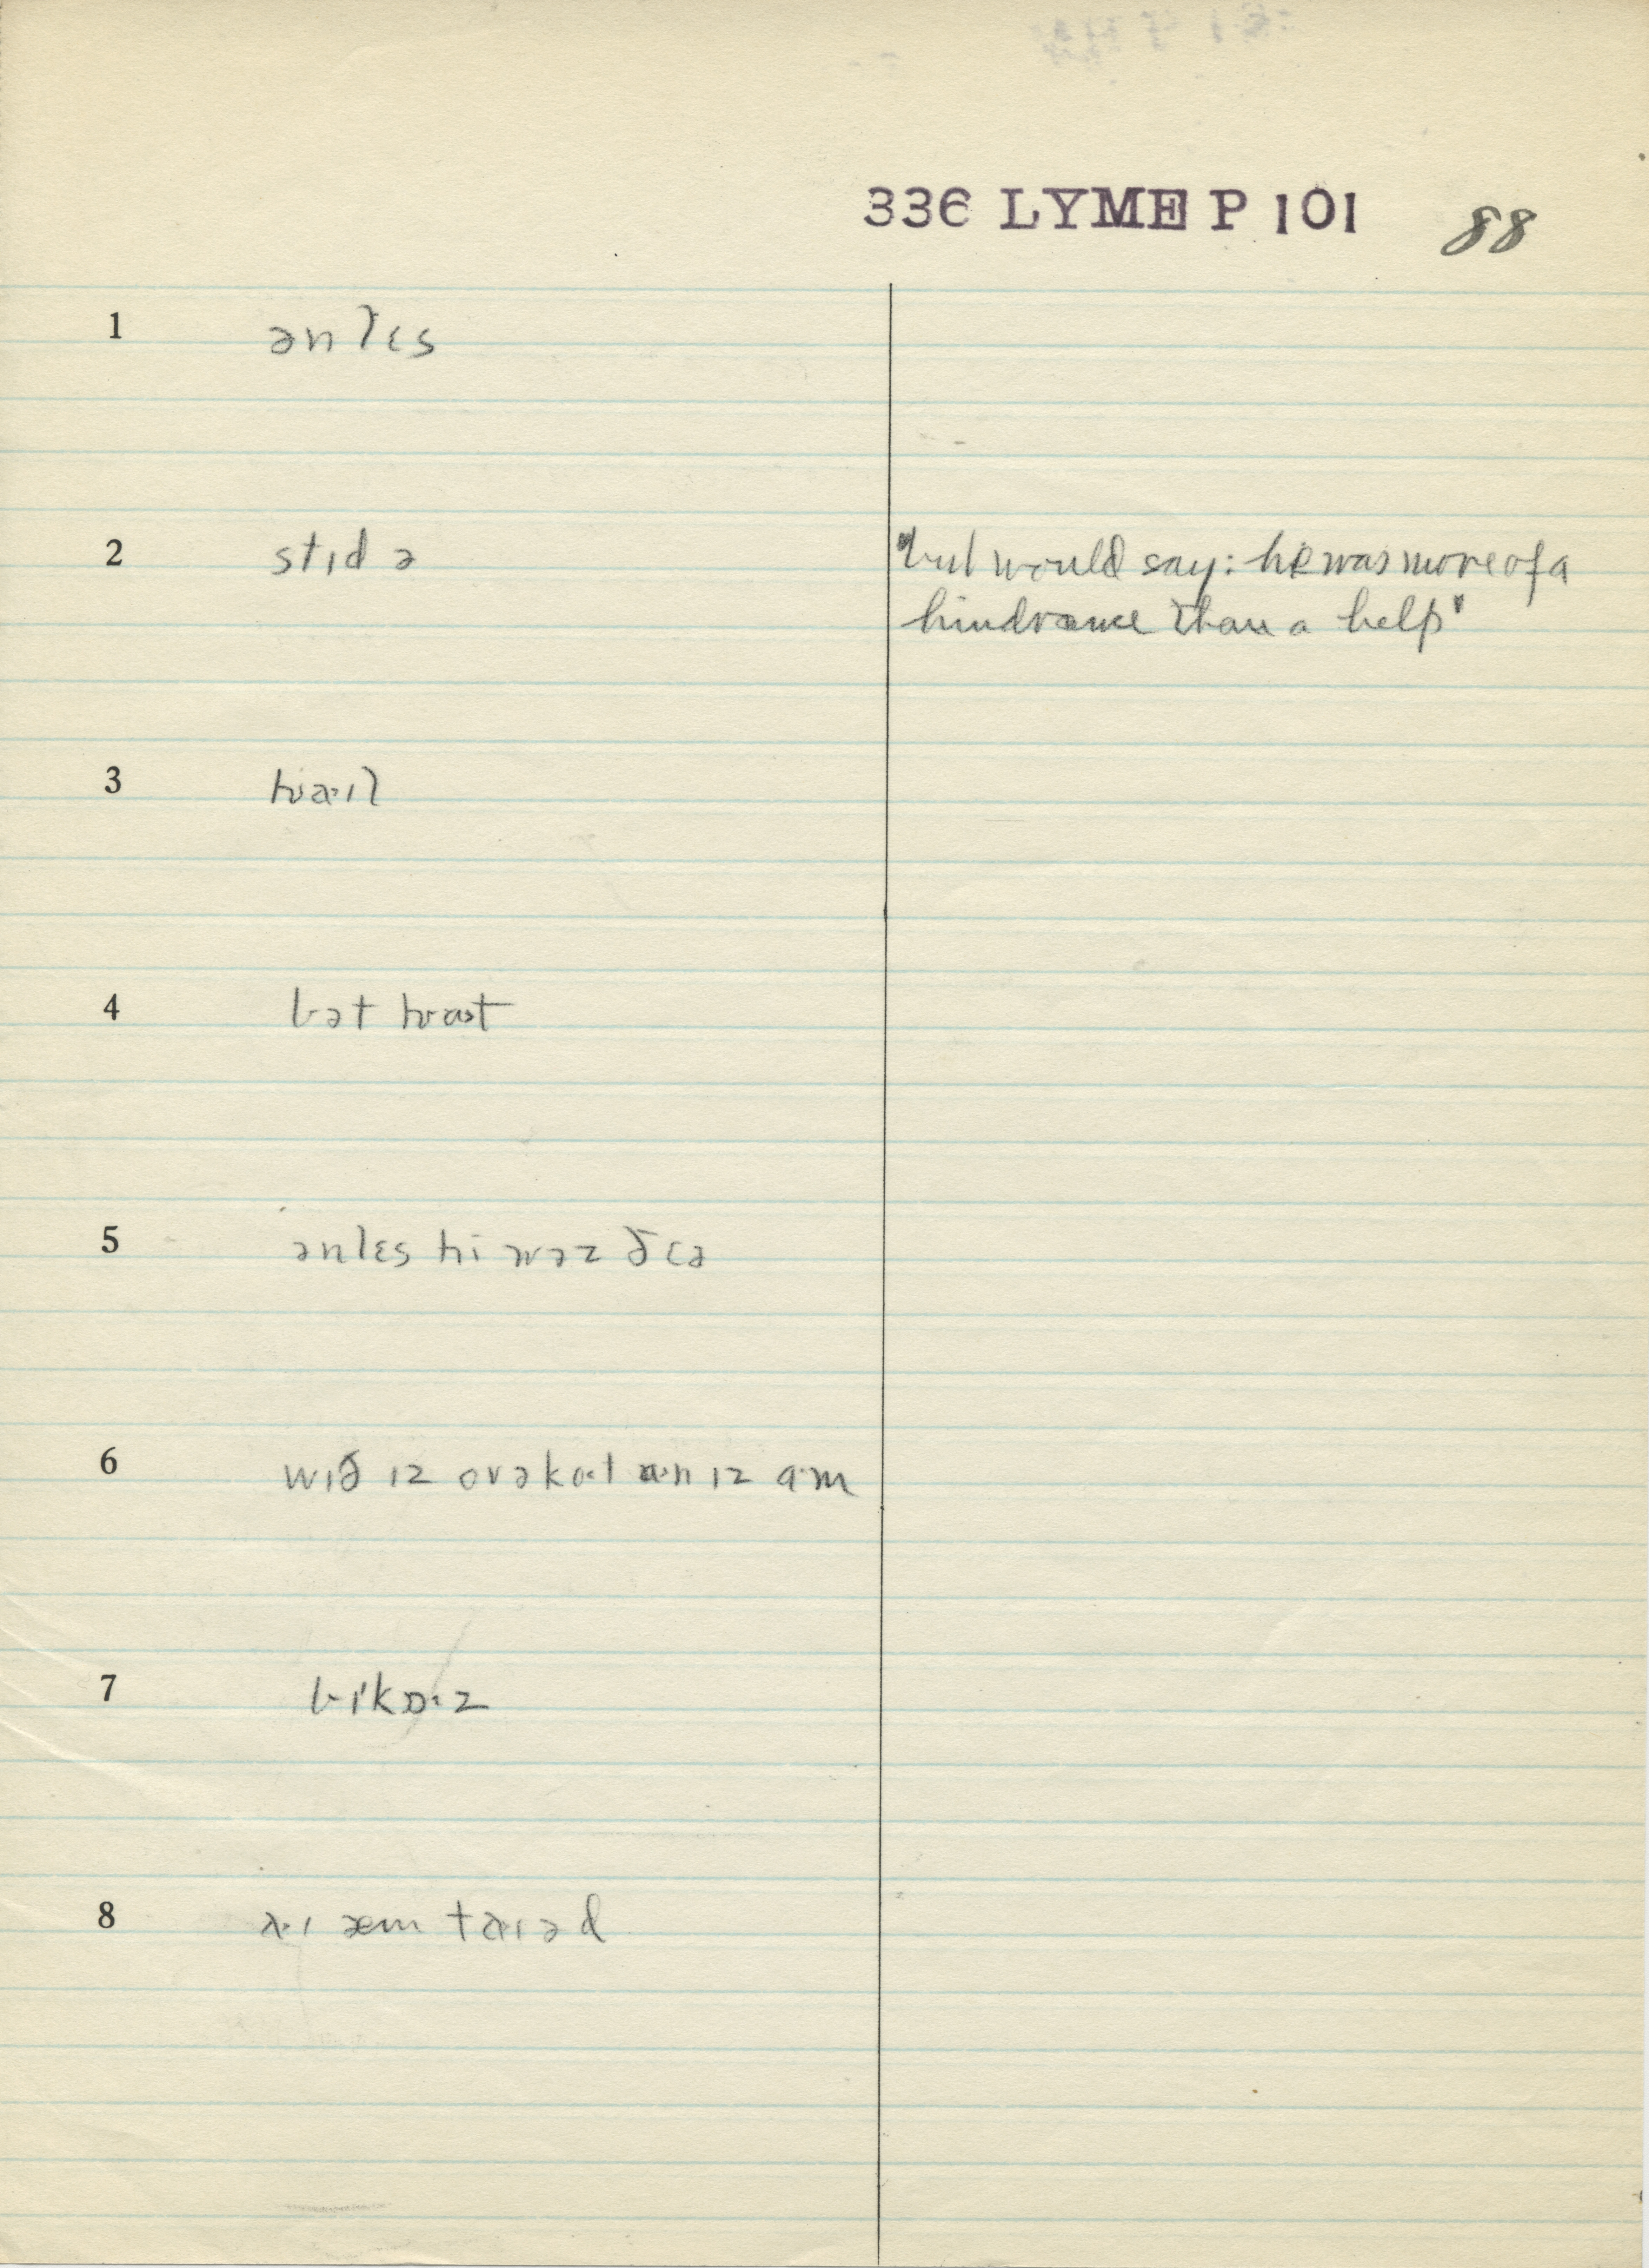 336 LYME P 101 88
1 ənlɛs
2 stɪd ə "but would say: he was more of a
hindrance than a help"
3 hwaɪl
4 bət hwat
5 ənlɛs hi wəz ðɛə
6 wɪð ɪz ovəkot ɪz am
7 bɪ'kɒ·z
8 a·ɪ æm taɪəd